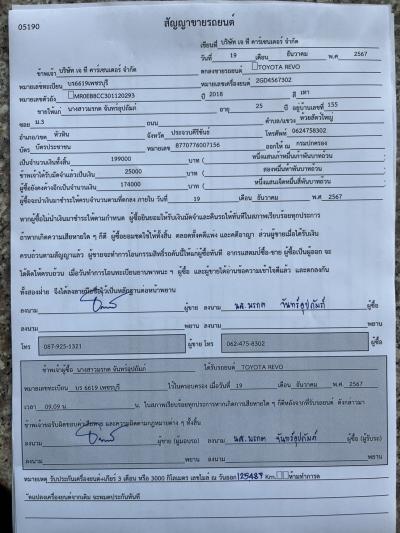 05190
สัญญาขายรถยนต์
เขียนที่ บริษัท เจ ที คาร์เซนเตอร์ จำกัด
วันที่ 19 เดือน ธันวาคม พ.ศ 2567
ข้าพเจ้า บริษัท เจ ที คาร์เซนเตอร์ จำกัด ตกลงขายรถยนต์ TOYOTA REVO
หมายเลขทะเบียน บร6619เพชรบุรี หมายเลขเครื่องยนต์ 2GD4567302
หมายเลขตัวถัง MR0EB8CC301120293 ปี 2018 สี เทา
ขายให้แก่ นางสาวมรกต จันทร์อุปถัมภ์ อายุ 25 ปี อยู่บ้านเลขที่ 155
ซอย ม.3 ถนน ตำบล/แขวง ห้วยสัตว์ใหญ่
อำเภอ/เขต หัวหิน จังหวัด ประจวบคีรีขันธ์ โทรศัพท์ 0624758302
บัตร บัตรประชาชน หมายเลข 8770776007156 ออกให้ ณ กรมปกครอง
เป็นจำนวนเงินทั้งสิ้น 199000 บาท ( หนึ่งแสนเก้าหมื่นเก้าพันบาทถ้วน )
ข้าพเจ้าได้รับมัดจำแล้วเป็นเงิน 25000 บาท ( สองหมื่นห้าพันบาทถ้วน )
ผู้ซื้อยังคงค้างอีกเป็นจำนวนเงิน 174000 บาท ( หนึ่งแสนเจ็ดหมื่นสี่พันบาทถ้วน )
ผู้ซื้อจะนำเงินมาชำระให้ครบจำนวนตามที่ตกลง ภายใน วันที่ 19 เดือน ธันวาคม พ.ศ 2567
หากผู้ซื้อไม่นำเงินมาชำระให้ตามกำหนด ผู้ซื้อยินยอมให้ริบเงินมัดจำและคืนรถให้ทันทีในสภาพเรียบร้อยทุกประการ
ถ้าหากเกิดความเสียหายใด ๆ ก็ดี ผู้ซื้อยอมชดใช้ให้ทั้งสิ้น ตลอดทั้งคดีแพ่ง และคดีอาญา ส่วนผู้ขายเมื่อได้รับเงิน
ครบถ้วนตามสัญญาแล้ว ผู้ขายจะทำการโอนกรรมสิทธิ์รถคันนี้ให้แก่ผู้ซื้อทันที
ทั้งสองฝ่าย จึงได้ลงลายมือชื่อไว้เป็นหลักฐานต่อหน้าพยาน
ลงนาม ผู้ขาย ลงนาม นส.มรกต จันทร์อุปถัมภ์ ผู้ซื้อ
ลงนาม พยาน ลงนาม พยาน
โทร 087-925-1321 ผู้ขาย โทร 062-475-8302 ผู้ซื้อ
ข้าพเจ้าผู้ซื้อ นางสาวมรกต จันทร์อุปถัมภ์ ได้รับรถยนต์ TOYOTA REVO
หมายเลขทะเบียน บร 6619 เพชรบุรี ไว้ในครอบครอง เมื่อวันที่ 19 เดือน ธันวาคม พ.ศ 2567
เวลา 09.09 น. ในสภาพเรียบร้อยทุกประการหากเกิดการเสียหายใด ๆ ก็ดีหลังจากที่รับรถยนต์ ดังกล่าวมา
ลงนาม ผู้ขาย (ผู้มอบรถ) ลงนาม นส.มรกต จันทร์อุปถัมภ์ ผู้ซื้อ (ผู้รับรถ)
ลงนาม พยาน ลงนาม พยาน
หมายเหตุ รับประกันเครื่องยนต์+เกียร์ 3 เดือน หรือ 3000 กิโลเมตร เลขไมล์ ณ วันออก 125487 Km. ห้ามทำการดัดแปลงเครื่องยนต์จากเดิม จะหมดประกันทันที